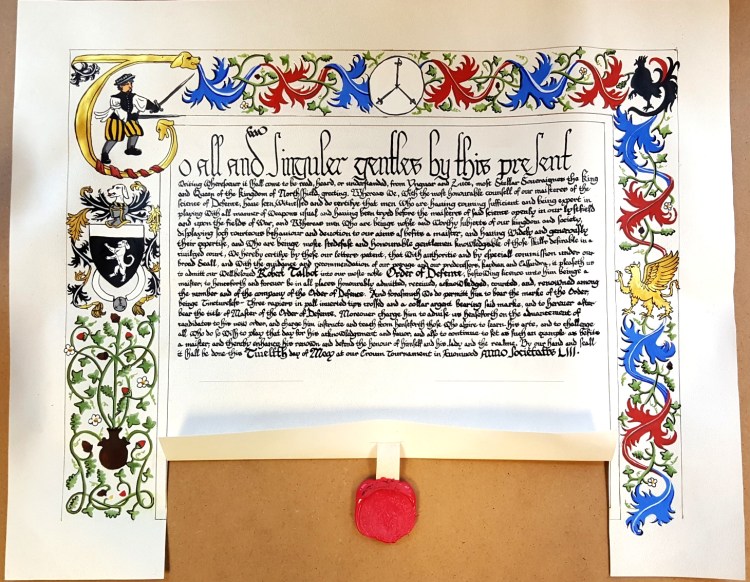 To all and Singuler gentles by this present
Writing Wheresoever it shall come to be read, heard, or understanded, from Vngaar and Zuse, most Stellar Souveraignes the King
and Quene of the Kingdom of Northshield, greeting. Whereas We, With the most honourable counsell of our maisteres of the
science of Defence, have seen, Witnessed and do certifye that men Who are having cunning sufficient and being expert in
playing With all manner of Weapons usual and having been tryed before the maisteres of said science openly in our lystsfield
and upon the fields of War, and Whereas men Who are beinge noble and Worthy subjects of our kingdom and society,
displaying soch vourteous behaviour and devotion to our aims as befits a maister, and having Widely and generously
their expertise, and Who are beinge moste stedefast and honourable gentlemen knowledgable of those skills desirable in a
civilized court, We hereby certify by these our letteres patent, that With authoritie and by speciall commission under our
broad Seall, and With the guidance and recommendation of our populace and our predecessors, it pleaseth us
to admitt our Wellbeloved Robert Talbot into our moste noble Order of Defence, bestowing licence unto him beinge a
maister, to henceforth and forever be in all places honourably admitted, received, acknowledged, counted, and renowned among
the number and of the company of the Order of Defence. And forasmuch We do permitt him to bear the marke of the Order,
beinge Tinctureless Three rapiers in pall inverted tips crossed and a collar argent bearing said marke, and to forever after
bear the title of Master of the Order of Defence. Moreover charge him to advise us henceforth on the advancement of
candidates to this most order, and charge him instructe and teach from henceforth those Who aspire to learn his arts, and to challenge
all Who do so Wish to play that day for his acknowledgement and favor, and also to continue to set as such an example as befits
a maister, and thereby enhance his renown and defend the honour of himself and his lady and the realme. By our hand and seall
it shall be done this Twelfth day of May at our Crown Tournament in Anno Societatis LIII.